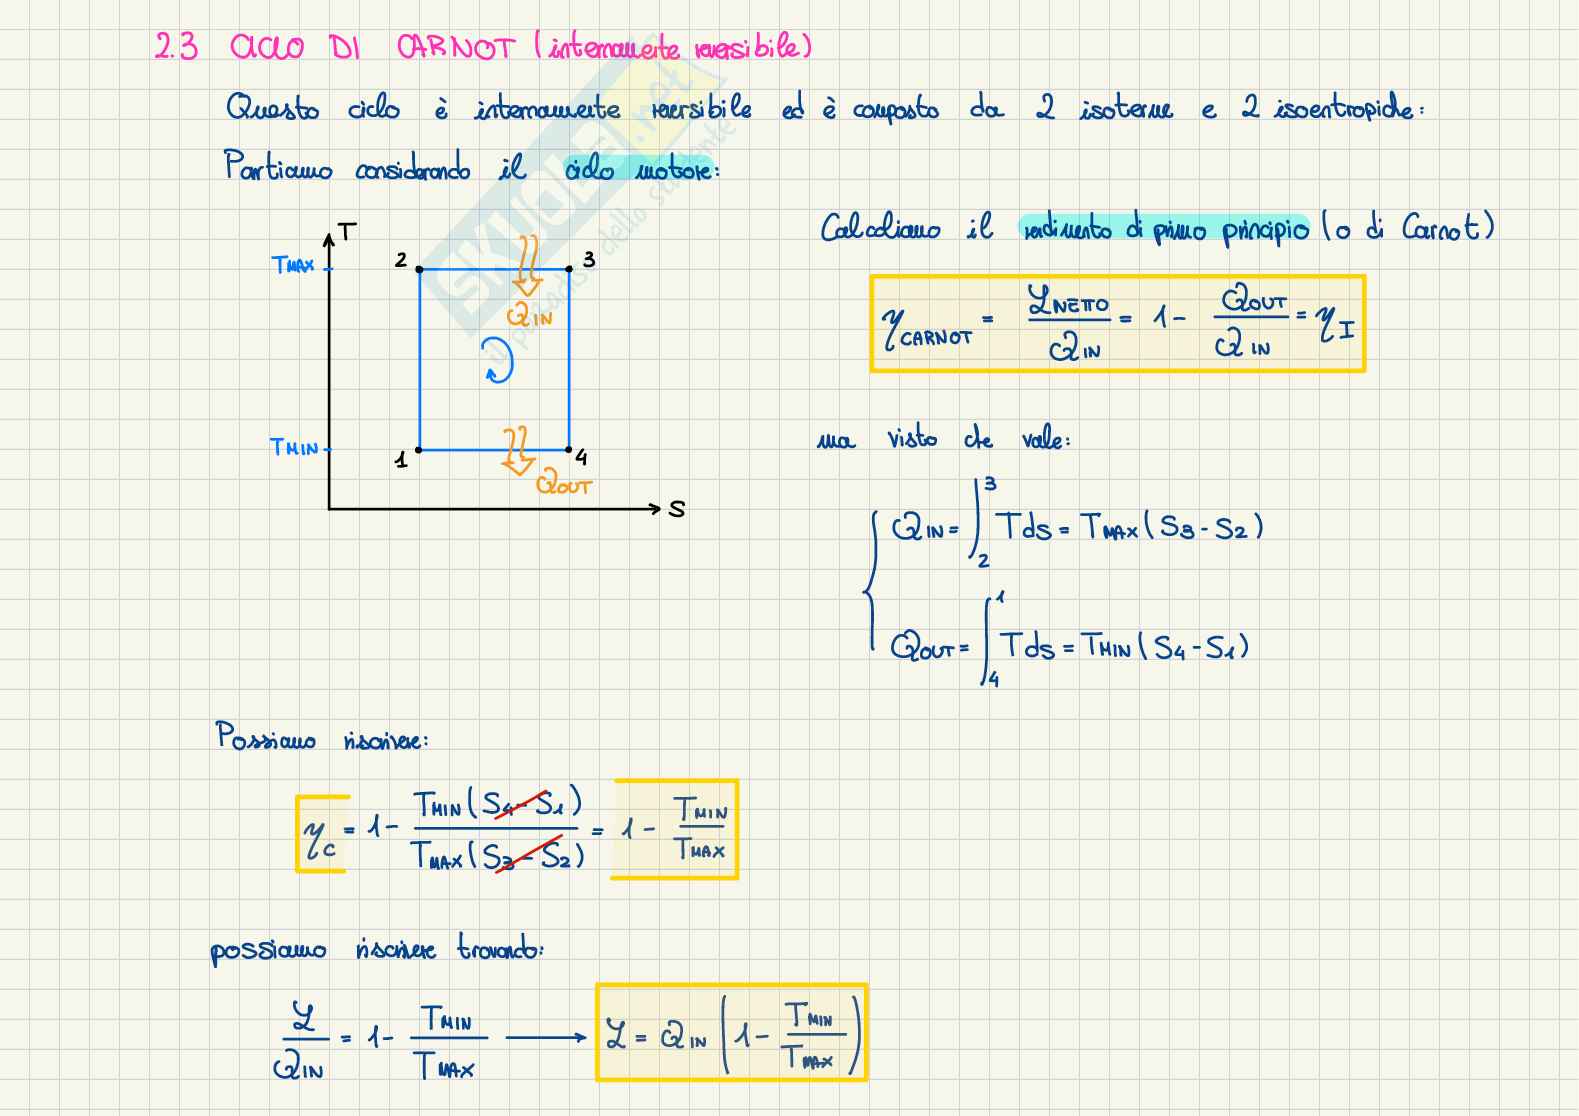 2.3 CICLO DI CARNOT (internamente reversibile)
Questo ciclo è internamente reversibile ed è composto da 2 isoterme e 2 isoentropiche:
Partiamo considerando il ciclo motore:
T
TMAX
2
3
QIN
TMIN
1
4
QOUT
S
Calcoliamo il rendimento di primo principio (o di Carnot)
η CARNOT = ℒNETTO / QIN = 1 - QOUT / QIN = η I
ma visto che vale:
QIN = ∫₂³ Tds = TMAX (S3 - S2)
QOUT = ∫₄¹ Tds = TMIN (S4 - S1)
Possiamo riscrivere:
ηC = 1 - TMIN (S4 - S1) / TMAX (S3 - S2) = 1 - TMIN / TMAX
possiamo riscrivere trovando:
ℒ / QIN = 1 - TMIN / TMAX → ℒ = QIN (1 - TMIN / TMAX)
SKUOLA.net
il paradiso dello studente